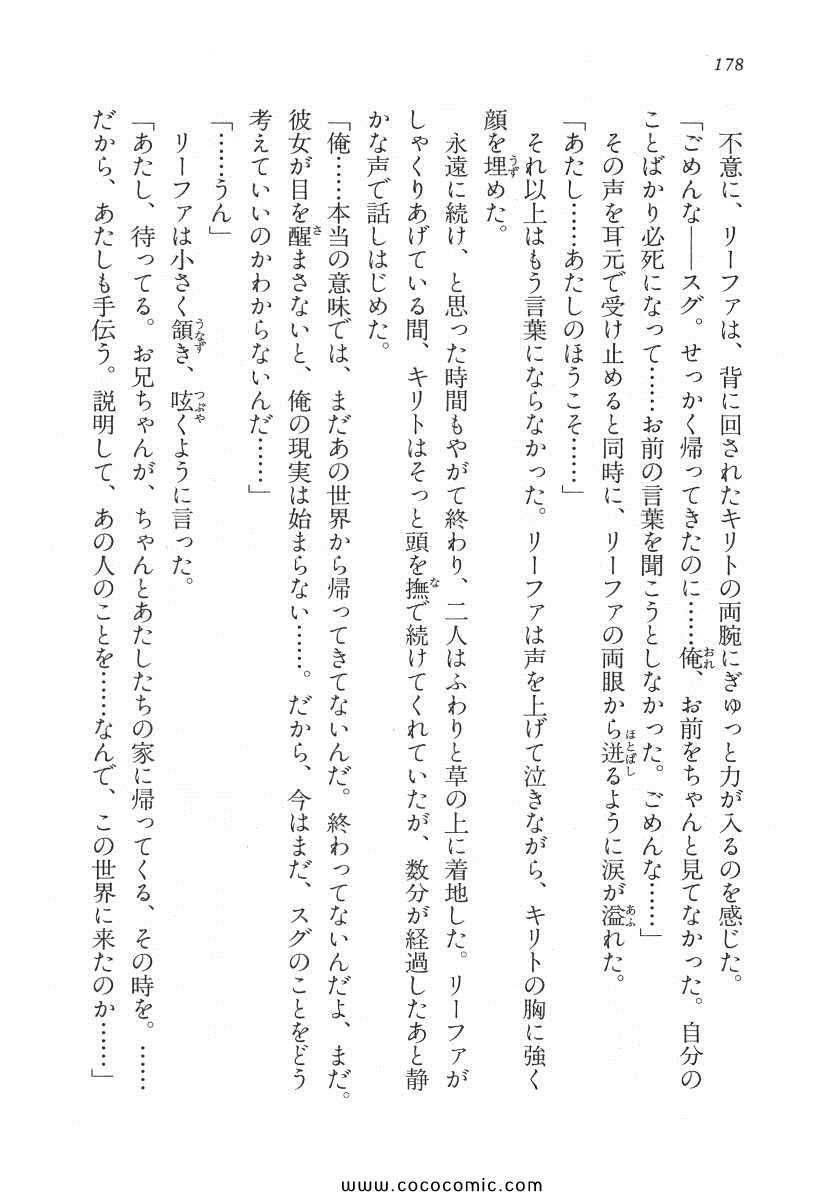 178
不意に、リーファは、背に回されたキリトの両腕にぎゅっと力が入るのを感じた。
「ごめんな――スグ。せっかく帰ってきたのに……俺、お前をちゃんと見てなかった。自分の
ことばかり必死になって……お前の言葉を聞こうとしなかった。ごめんな……」
その声を耳元で受け止めると同時に、リーファの両眼から迸るように涙が溢れた。
「あたし……あたしのほうこそ……」
それ以上はもう言葉にならなかった。リーファは声を上げて泣きながら、キリトの胸に強く
顔を埋めた。
永遠に続け、と思った時間もやがて終わり、二人はふわりと草の上に着地した。リーファが
しゃくりあげている間、キリトはそっと頭を撫で続けてくれていたが、数分が経過したあと静
かな声で話しはじめた。
「俺……本当の意味では、まだあの世界から帰ってきてないんだ。終わってないんだよ、まだ。
彼女が目を醒まさないと、俺の現実は始まらない……。だから、今はまだ、スグのことをどう
考えていいのかわからないんだ……」
「……うん」
リーファは小さく頷き、呟くように言った。
「あたし、待ってる。お兄ちゃんが、ちゃんとあたしたちの家に帰ってくる、その時を。……
だから、あたしも手伝う。説明して、あの人のことを……なんで、この世界に来たのか……」
www.cococomic.com